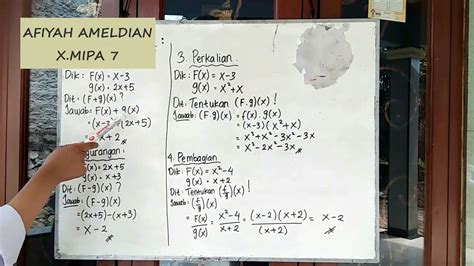 AFIYAH AMELDIAN
X.MIPA 7
Dik: F(x) = x-3
g(x) = 2x+5
Dit: (F+g)(x)?
Jawab: F(x) + g(x)
= (x-3) (2x+5)
+2
gurangan:
g(x) = x+3
Dit: (F-g)(x)?
Jawab: (F-g)(x)
= (2x+5) - (x+3)
= x-2
3. Perkalian.
Dik: F(x) = x-3
g(x) = x²+x
Dit: Tentukan (F.g)(x)!
Jawab: (F.g)(x) = f(x).g(x)
= (x-3)(x²+x)
= x³+x²-3x²-3x
= x³-2x²-3x
4. Pembagian
Dik: F(x) = x²-4
g(x) = x+2
Dit: Tentukan (F/g)(x)!
Jawab: (F/g)(x)
= F(x)/g(x) = x²-4/x+2 = (x-2)(x+2)/(x+2) = x-2